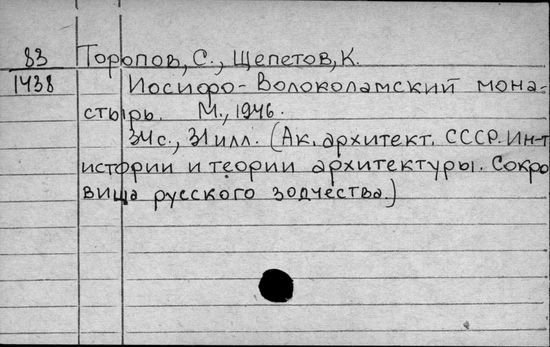 83 Торопов, С., Щепетов, К.
1438 Иосифо-Волоколамский мона-
стырь. М., 1946.
34 с., 31 илл. (Ак. архитект. СССР. Ин-т
истории и теории архитектуры. Сокро
вища русского зодчества.)